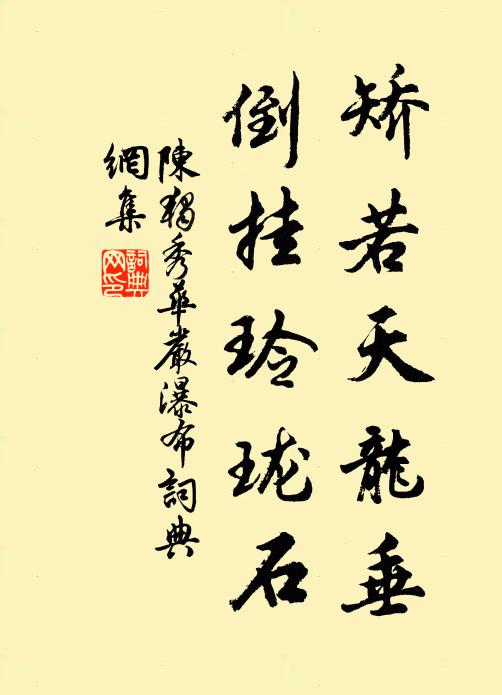 矫若天龍垂
倒挂玲珑石
陳獨秀華嚴瀑布詞典
網集
詞典
网印